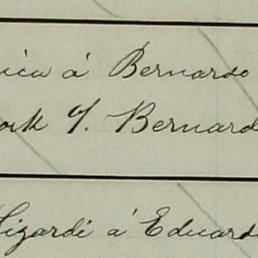 ica á Bernardo
ork y. Bernard
Lizardi á Eduard